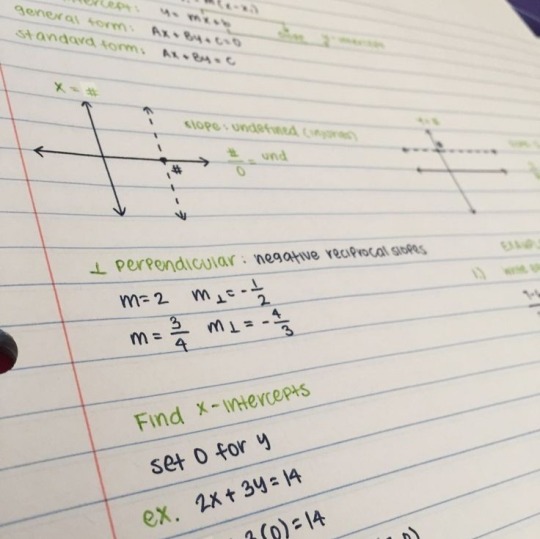 y = mx+b
general form: Ax + By + C = 0
standard form: Ax + By = C
x = #
slope: undefined
#/0 = und
#
⊥ perpendicular: negative reciprocal slopes
m=2 m⊥=-1/2
m=3/4 m⊥=-4/3
1)
Find x-intercepts
set 0 for y
ex. 2x + 3y = 14
3(0) = 14